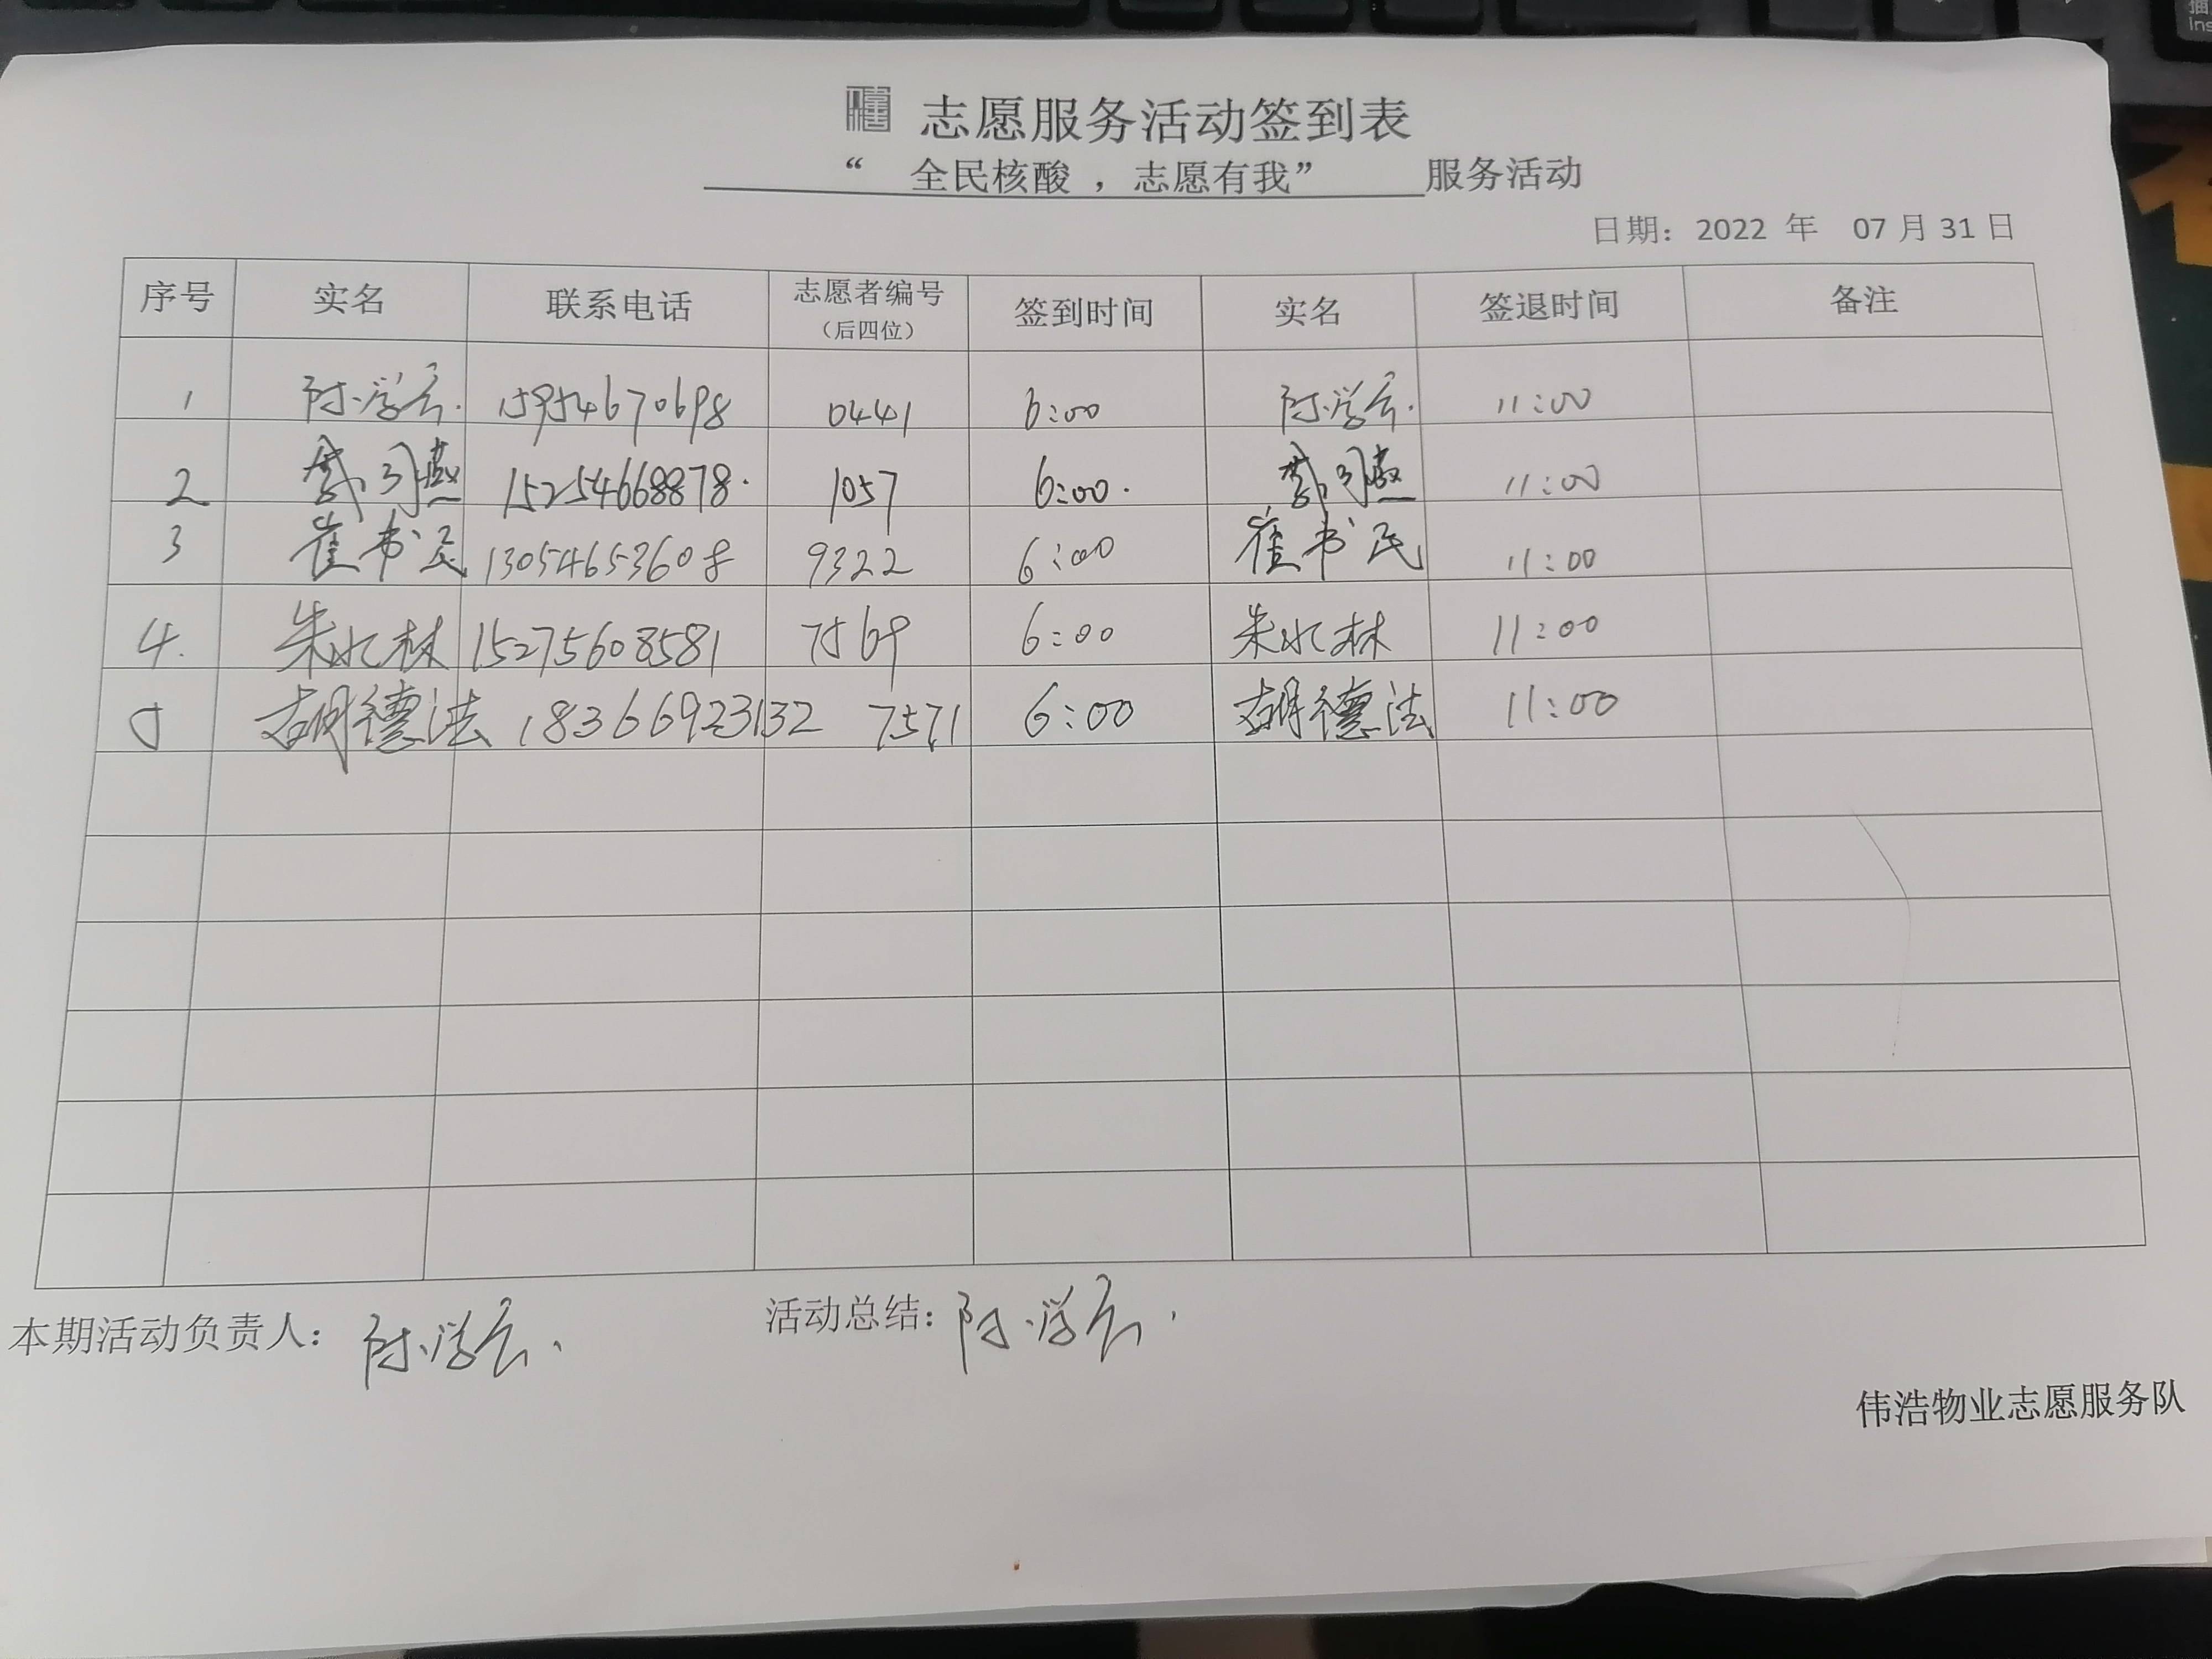 志愿服务活动签到表
“ 全民核酸 ，志愿有我” 服务活动
日期：2022 年 07 月 31 日
序号 实名 联系电话 志愿者编号（后四位） 签到时间 实名 签退时间 备注
1 15954670698 0441 6:00 11:00
2 15254668878. 1057 6:00. 11:00
3 崔书民 13054653608 9322 6:00 崔书民 11:00
4. 朱水林 15275608581 7569 6:00 朱水林 11:00
5 胡德法 18366923132 7571 6:00 胡德法 11:00
本期活动负责人： 活动总结：
伟浩物业志愿服务队